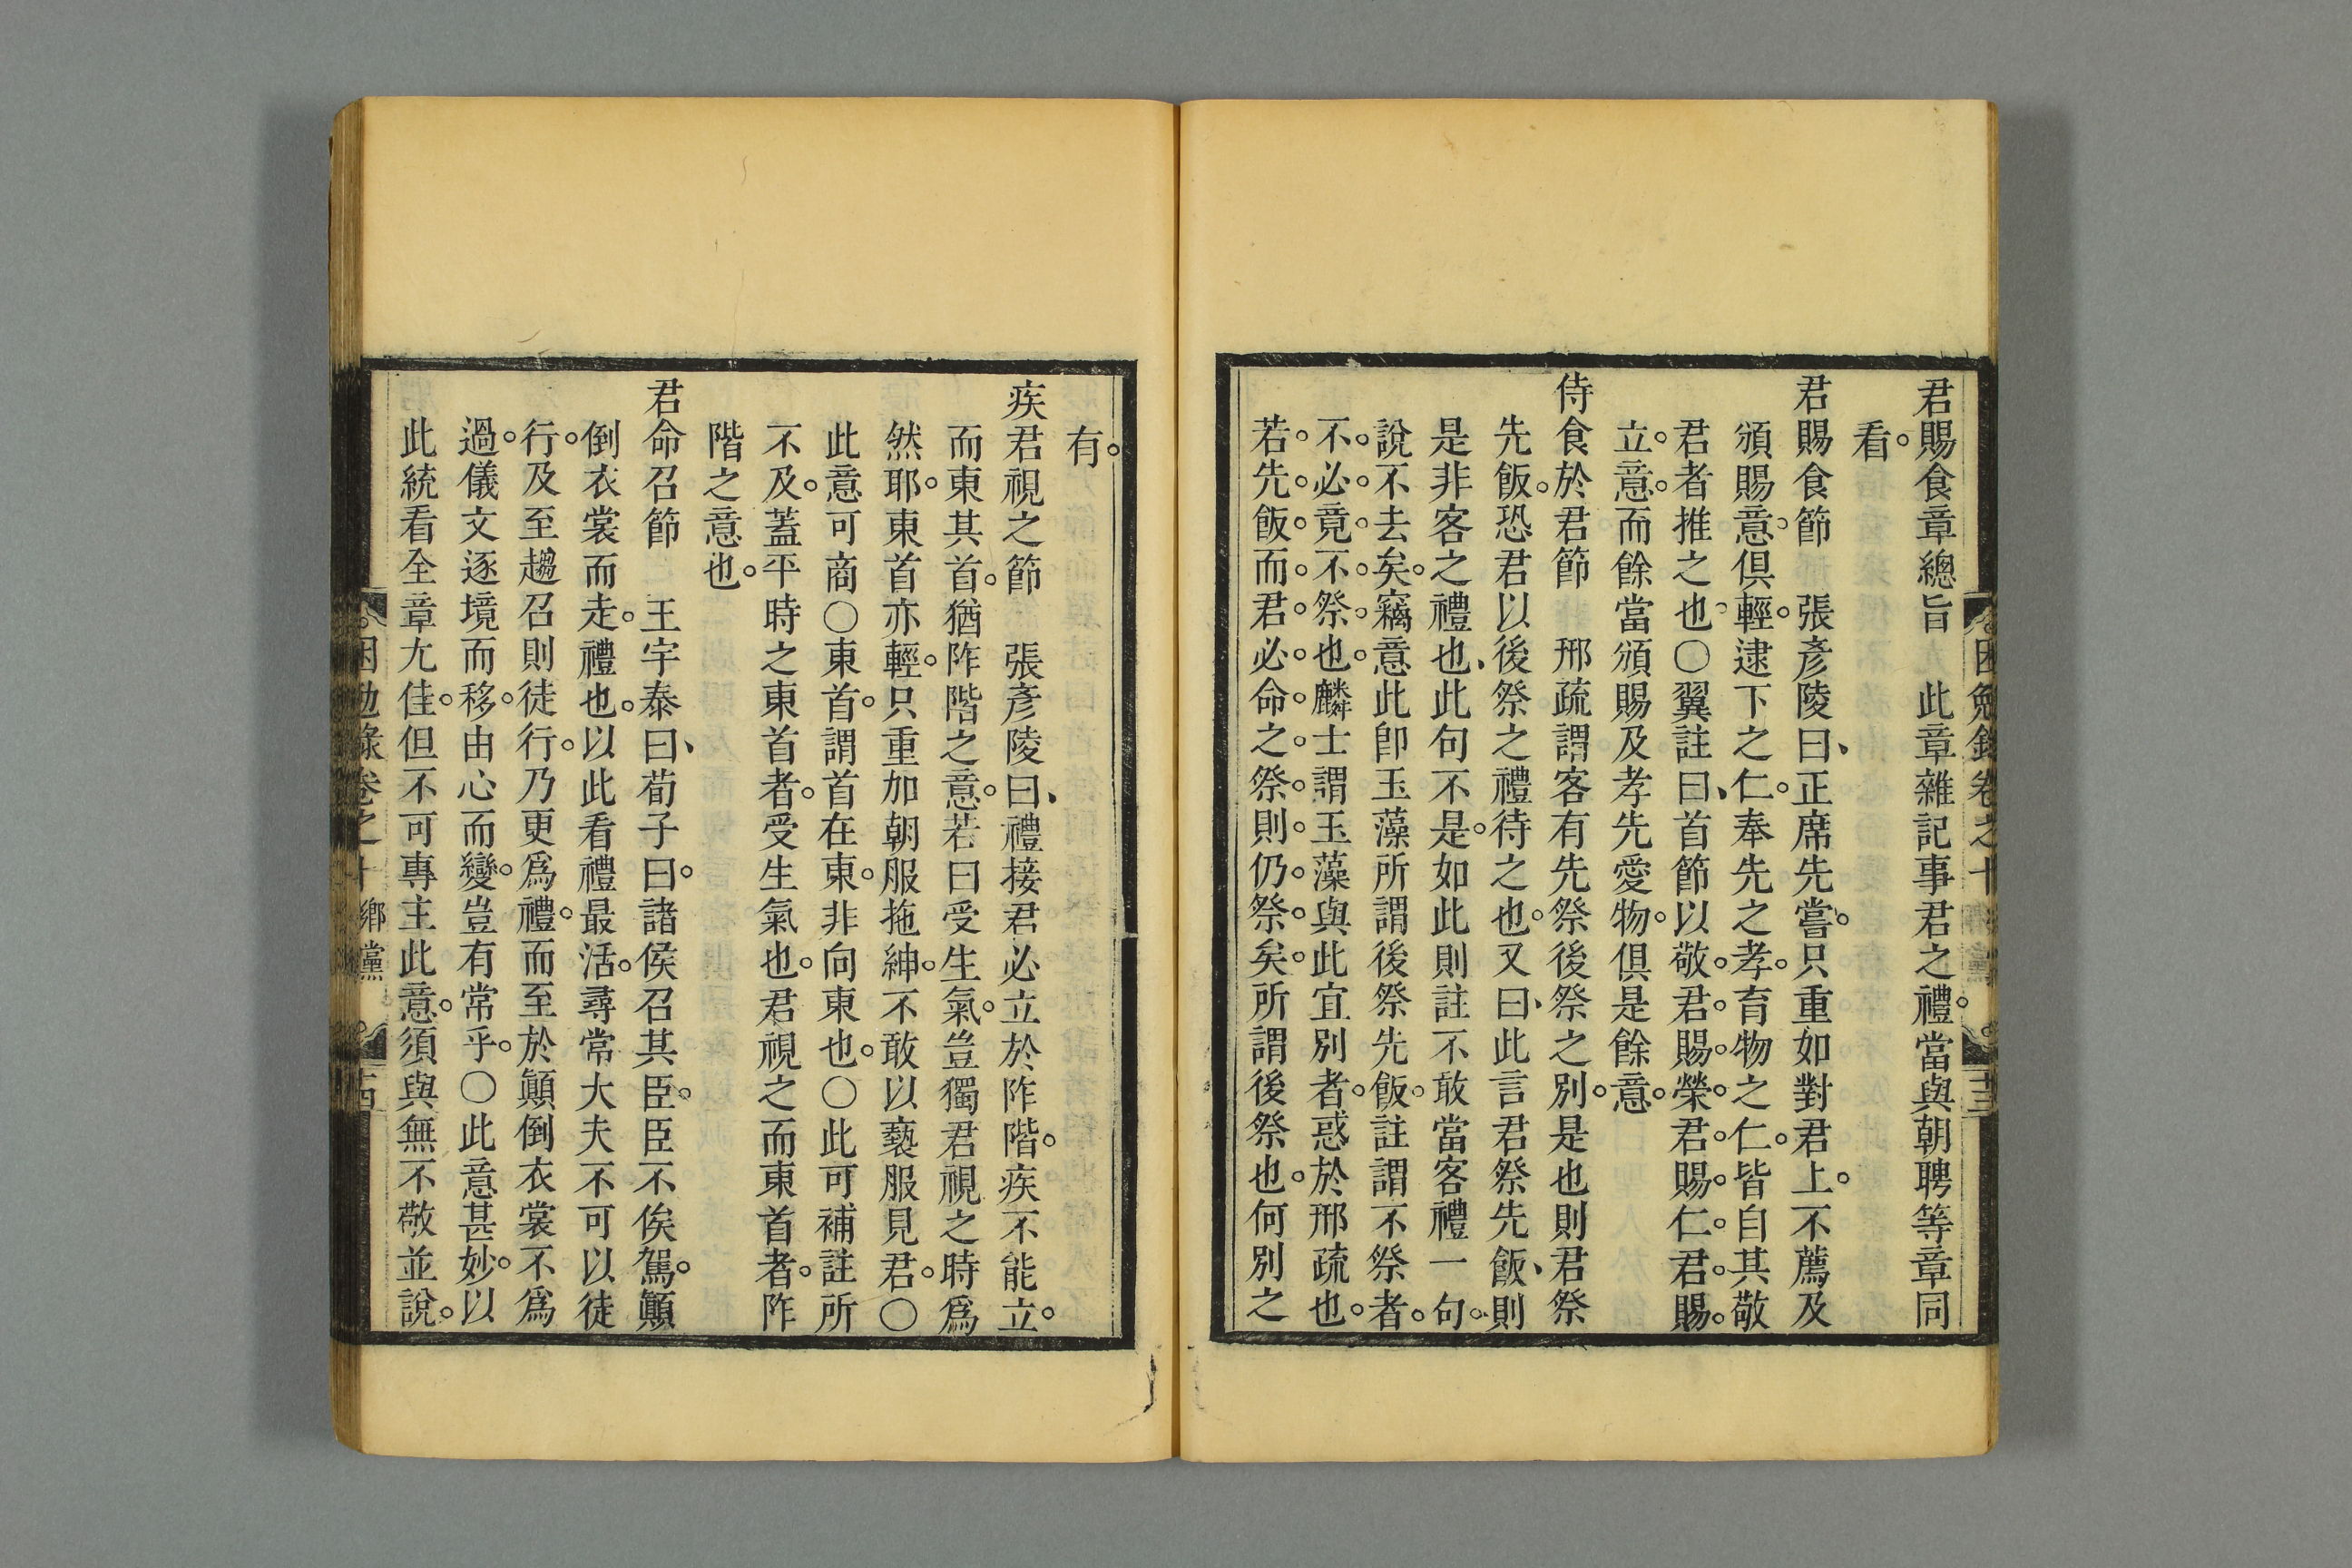 君賜食章總旨　此章雜記事君之禮。當與朝聘等章同
看。
君賜食節　張彥陵曰、正席先嘗。只重如對君上。不薦及
頒賜意。俱輕。逮下之仁。奉先之孝。育物之仁。皆自其敬
君者推之也。○翼註曰、首節以敬君。賜榮。君賜。仁君。賜。
立。意。而餘當頒賜及孝先愛物。俱是餘意。
侍食於君節　邢疏謂客有先祭後祭之別。是也則君祭
先飯。恐君以後祭之禮待之也。又曰、此言君祭先飯、則
是非客之禮也、此句不是。如此則註不敢當客禮一句。
說不去矣。竊意此卽玉藻所謂後祭先飯。註謂不祭者。
不。必。竟。不。祭。也。麟士謂玉藻與此宜別者。惑於邢疏也。
若。先。飯。而。君。必。命。之。祭。則。仍。祭。矣。所謂後祭也。何別之
困勉錄卷之十
十三
有。
疾君視之節　張彥陵曰、禮接君必立於阼階。疾不能立。
而東其首。猶阼階之意。若曰受生氣。豈獨君視之時爲
然耶。東首亦輕。只重加朝服拖紳。不敢以褻服見君。○
此意可商○東首。謂首在東。非向東也。○此可補註所
不及。蓋平時之東首者。受生氣也。君視之而東首者。阼
階之意也。
君命召節　王宇泰曰、荀子曰。諸侯召其臣。臣不俟駕。顚
倒衣裳而走。禮也。以此看禮最活。尋常大夫不可以徒
行。及至趨召則徒行。乃更爲禮。而至於顚倒衣裳不爲
過。儀文逐境而移。由心而變。豈有常乎。○此意甚妙。以
此統看全章尤佳。但不可專主此意。須與無不敬並說。
困勉錄卷之十　鄉黨
十四